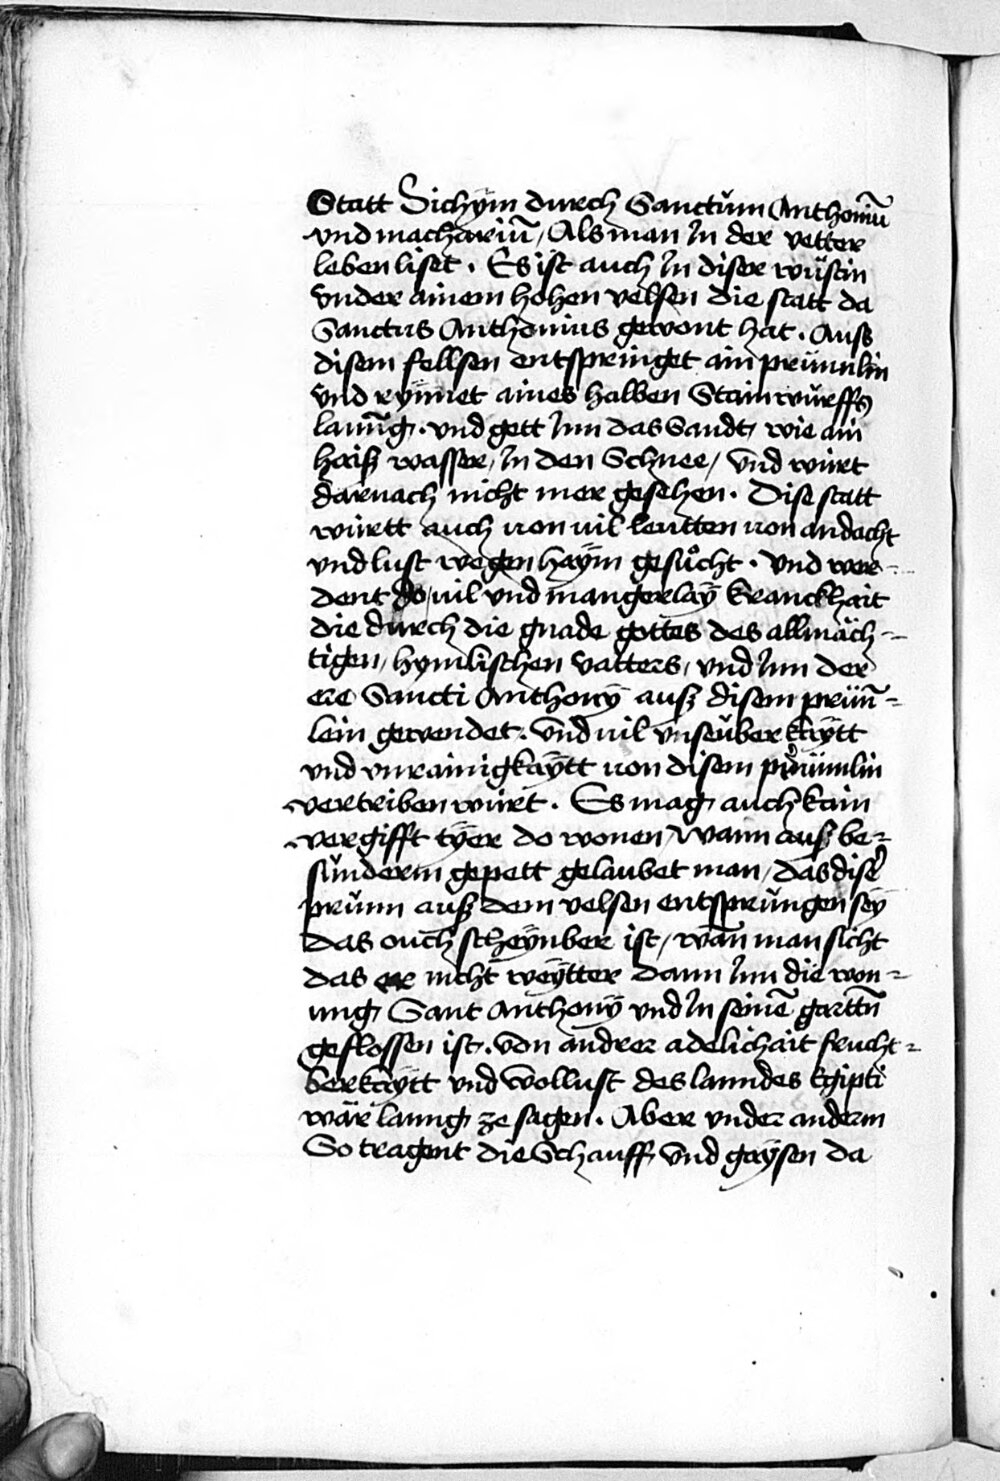 Statt Sichÿm durch Sanctŭm Anthoniū
vnd machariū / Als man jn der vetter
leben liset . Es ist auch jn diser wŭstin
vnder ainem hohen velsen die statt da
Sanctus Anthonius gewont hat . Auss
disem fellsen entspringet ain prŭnnlin
vnd rÿnnet aines halben Stainwŭrffs
lanng . vnd gett jnn das Sandt / wie ain
haiß wasser / jn den Schnee / vnd wirt
darnach nicht mer gesehen . Dise statt
wirtt auch von vil leutten von andacht
vnd lust wegen haÿm gesůcht . vnd wer-
dent do vil vnd mangerlaÿ kranckhait
die durch die gnade gottes des allmäch-
tigen / hymlischen vatters / vnd jnn der
ere Sancti Anthonÿ auß disem prŭn̄-
lein gewendet . vnd vil vnseŭberkaÿtt
vnd vnrainigkaÿtt von disem prŭnnlin
vertriben wirt . Es mag auch kain
vergifft tÿer do wonen / Wann auß be-
sŭnderm gepett gelaubet man / das diser
prŭnn auß dem velsen entsprŭngen seÿ
das ouch scheÿnber ist / wan̄ man sicht
das er nicht weÿtter dann jnn die won-
ung Sant Anthonÿ vnd jn seinē gartn̄
geflossen ist . von andrer adelichait frucht-
berkaÿtt vnd wollust des lanndes Egipti
wär lanng ze sagen . Aber vnder anderm
So tragent die Schauff vnd gaÿsen da